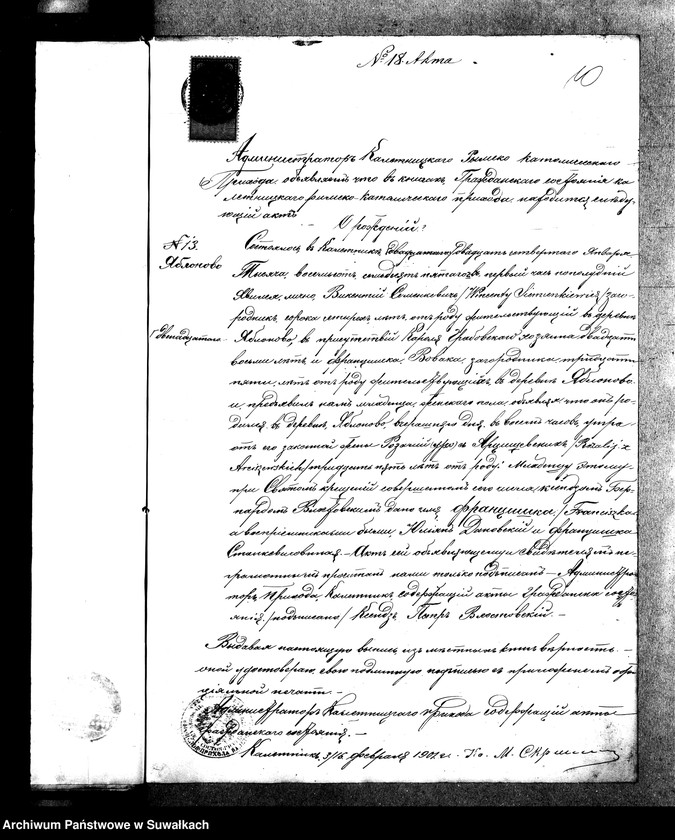 № 18. Акта
10
Администраторъ Калетникскаго Римско католическаго
Прихода, объявляетъ что въ книгахъ Гражданскаго состоянія ка
летницкаго римско-католическаго прихода, находится слѣду
ющій актъ
О рожденій:
№ 13.
Яблоново
Состоялось въ Калетникъ, Двадцатаго/двадцать четвертаго Января
Тысяча восемьсотъ семьдесятъ пятаго года, въ первый часъ пополудній
Явился лично, Викентій Семенкевичъ /Wincenty Simienkiewicz/ заго-
родникъ сорока четырехъ лѣтъ отъ роду жительствующій въ деревнѣ
Двѣнадцатаго
Яблоново, въ присутствій Кароля Грабовскаго хозяина двадцати
восьми лѣтъ и Францишка Вовака, загородника, тридцати
пяти лѣтъ отъ роду жительствующихъ въ деревнѣ Яблоново
и предъявилъ намъ младенца женскаго пола, объявляя что онъ ро-
дился въ деревнѣ Яблоново вчерашняго дня, въ восемь часовъ утра
отъ его законной жены Розаліи урож. /Rozalij z
тридцать пять лѣтъ отъ роду. Младенцу этому
при Святомъ крещеній совершенномъ сего числа, ксендзомъ Бер-
нардомъ дано имя Францишка /Franciszka/
а воспріемниками были, Юліянъ Дановскій и Францишка
Станкевичовная. – Актъ сей объявляющему и свидѣтелямъ не-
грамотнымъ прочитанъ нами только подписанъ – Администра-
торъ Прихода Калетникъ содержащій акты Гражданскаго состо-
янія /подписано/ Ксендзъ Петръ Властовскій. –
Выдавая настоящую выпись изъ мѣстныхъ книгъ вѣрность
оной удостовѣряю, своею подлинною подписью съ приложеніемъ оффи-
ціяльной печати. –
Администраторъ Калетницкаго Прихода содержащій акты
Гражданскаго состоянія. –
Калетникъ, 3/16 февраля 1901 г. Кс. М.
Archiwum Państwowe w Suwałkach